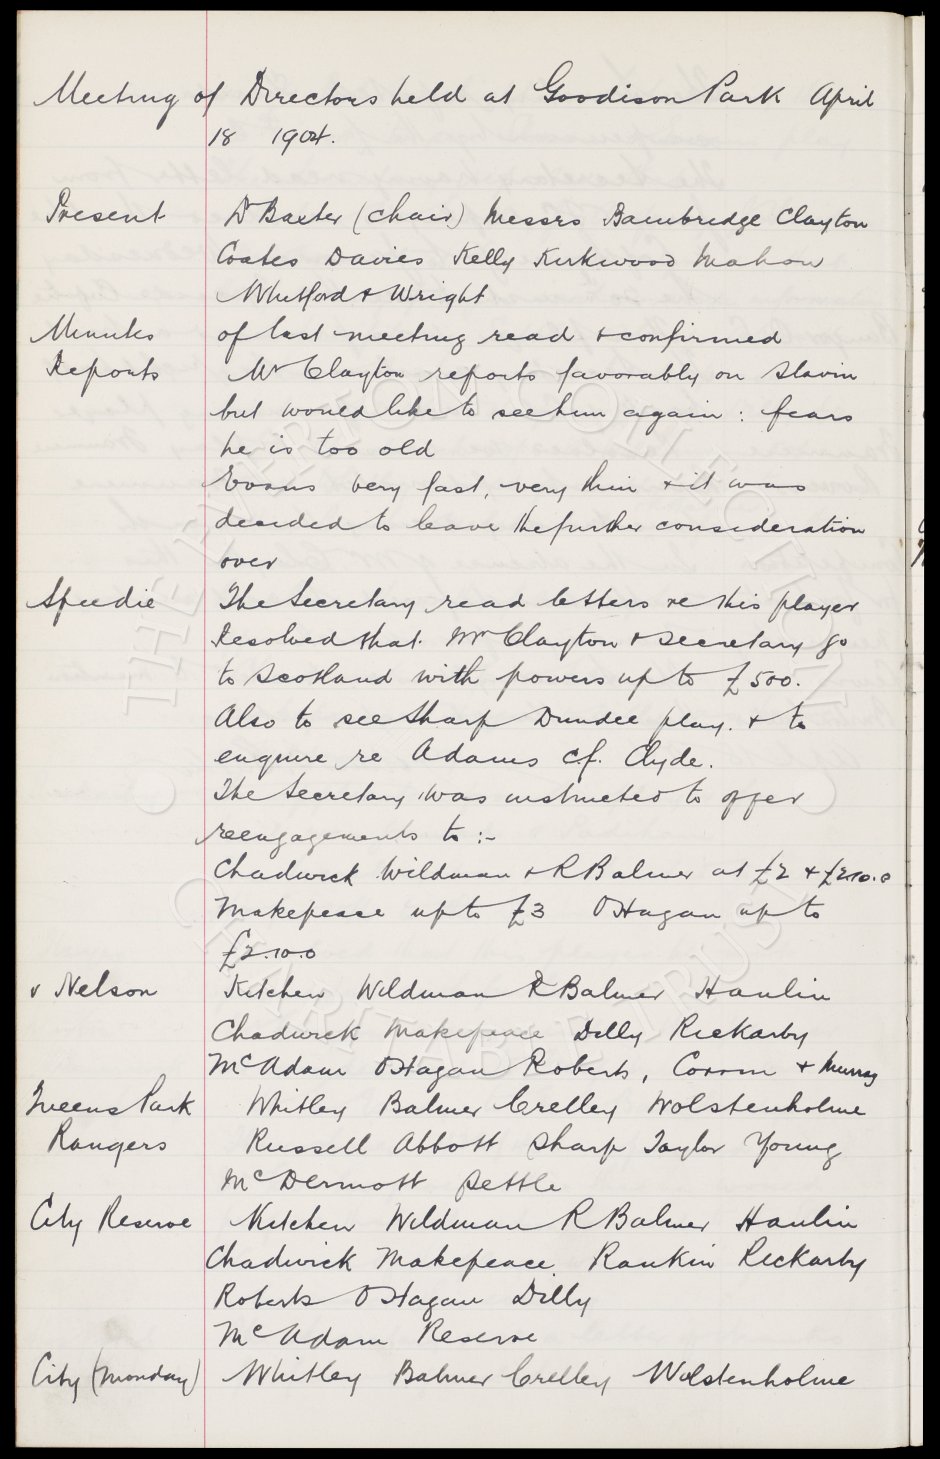 Meeting of Directors held at Goodison Park April
18 1904.
Present Dr Baxter (chair) Messrs Bainbridge Clayton
Coates Davies Kelly Kirkwood Mahon
Whitford & Wright
Minutes of last meeting read & confirmed
Reports Mr Clayton reports favorably on Slavin
but would like to see him again : fears
he is too old
Evans very fast, very thin & it was
decided to leave the further consideration
over
Speedie The Secretary read letters re this player
Resolved that Mr Clayton & Secretary go
to Scotland with powers up to £500.
Also to see Sharp Dundee play. & to
enquire re Adams c.f. Clyde.
The Secretary was instructed to offer
reengagements to :-
Chadwick Wildman & R Balmer at £2 & £2.10.0
Makepeace up to £3 OHagan up to
£2.10.0
v Nelson Kitchen Wildman R Balmer Hanlin
Chadwick Makepeace Dilly Rickarby
McAdam OHagan Roberts, Corrin & Murray
Queens Park Whitley Balmer Crelley Wolstenholme
Rangers Russell Abbott Sharp Taylor Young
McDermott Settle
City Reserve Kitchen Wildman R Balmer Hanlin
Chadwick Makepeace. Rankin Rickarby
Roberts OHagan Dilly
McAdam Reserve
City (Monday) Whitley Balmer Crelley Wolstenholme
THE EVERTON COLLECTION
CHARITABLE TRUST